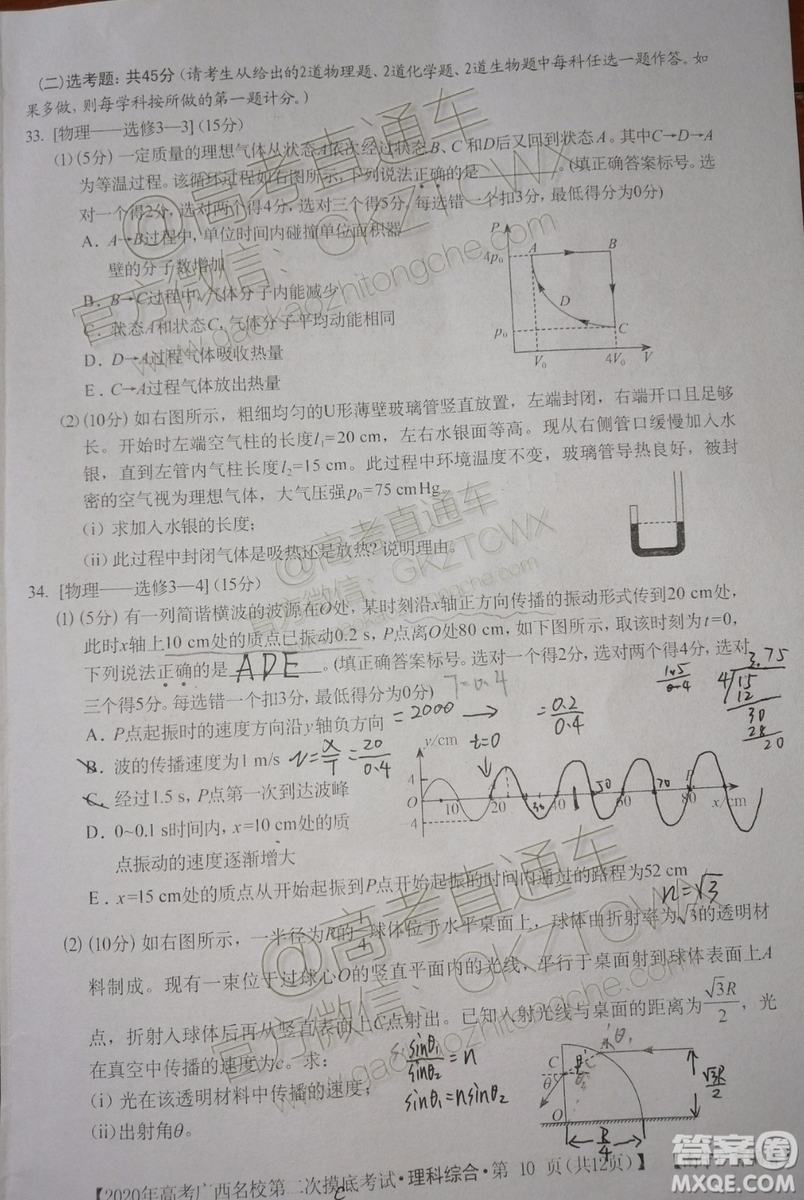 (二)选考题：共45分(请考生从给出的2道物理题、2道化学题、2道生物题中每科任选一题作答。如
果多做，则每学科按所做的第一题计分。)
33. [物理——选修3—3](15分)
(1)(5分) 一定质量的理想气体从状态A依次经过状态B、C和D后又回到状态A。其中C→D→A
为等温过程。该循环过程如右图所示，下列说法正确的是________。(填正确答案标号。选
对一个得2分，选对两个得4分，选对三个得5分，每选错一个扣3分，最低得分为0分)
A．A→B过程中，单位时间内碰撞单位面积器
壁的分子数增加
B．B→C过程中，气体分子内能减少
C．状态A和状态C，气体分子平均动能相同
D．D→A过程气体吸收热量
E．C→A过程气体放出热量
P
4p₀
A
B
D
p₀
C
O
V₀
4V₀
V
(2)(10分) 如右图所示，粗细均匀的U形薄壁玻璃管竖直放置，左端封闭，右端开口且足够
长。开始时左端空气柱的长度l₁=20 cm，左右水银面等高。现从右侧管口缓慢加入水
银，直到左管内气柱长度l₂=15 cm。此过程中环境温度不变，玻璃管导热良好，被封
密的空气视为理想气体，大气压强p₀=75 cmHg。
(i) 求加入水银的长度；
(ii) 此过程中封闭气体是吸热还是放热?说明理由。
34. [物理——选修3—4](15分)
(1)(5分) 有一列简谐横波的波源在O处，某时刻沿x轴正方向传播的振动形式传到20 cm处，
此时x轴上10 cm处的质点已振动0.2 s，P点离O处80 cm，如下图所示，取该时刻为t=0，
下列说法正确的是 ADE 。(填正确答案标号。选对一个得2分，选对两个得4分，选对
三个得5分。每选错一个扣3分，最低得分为0分)
T=0.4
1.5
0.4
3.75
4 15
12
30
28
20
A．P点起振时的速度方向沿y轴负方向
=2000 →
=0.2
0.4
B．波的传播速度为1 m/s
v=x/T=20/0.4
C．经过1.5 s，P点第一次到达波峰
D．0~0.1 s时间内，x=10 cm处的质
点振动的速度逐渐增大
y/cm
t=0
4
O
4
10
20
30
40
50
60
70
80
P
x/cm
E．x=15 cm处的质点从开始起振到P点开始起振的时间内通过的路程为52 cm
n=√3
(2)(10分) 如右图所示，一半径为R的1/4球体位于水平桌面上，球体由折射率为√3的透明材
料制成。现有一束位于过球心O的竖直平面内的光线，平行于桌面射到球体表面上A
点，折射入球体后再从竖直表面上C点射出。已知入射光线与桌面的距离为√3R/2，光
在真空中传播的速度为c。求：
(i) 光在该透明材料中传播的速度；
(ii)出射角θ。
sinθ₁/sinθ₂=n
sinθ₁=nsinθ₂
θ₁
C
θ
O
√3R/2
R/4
【2020年高考广西名校第二次摸底考试·理科综合·第 10 页(共12页)】
@高考直通车
官方微信：GKZTCWX
www.gaokaozhitongche.com
@高考直通车
官方微信：GKZTCWX
www.gaokaozhitongche.com
@高考直通车
官方微信：GKZTCWX
www.gaokaozhitongche.com
答案圈
MXQE.COM